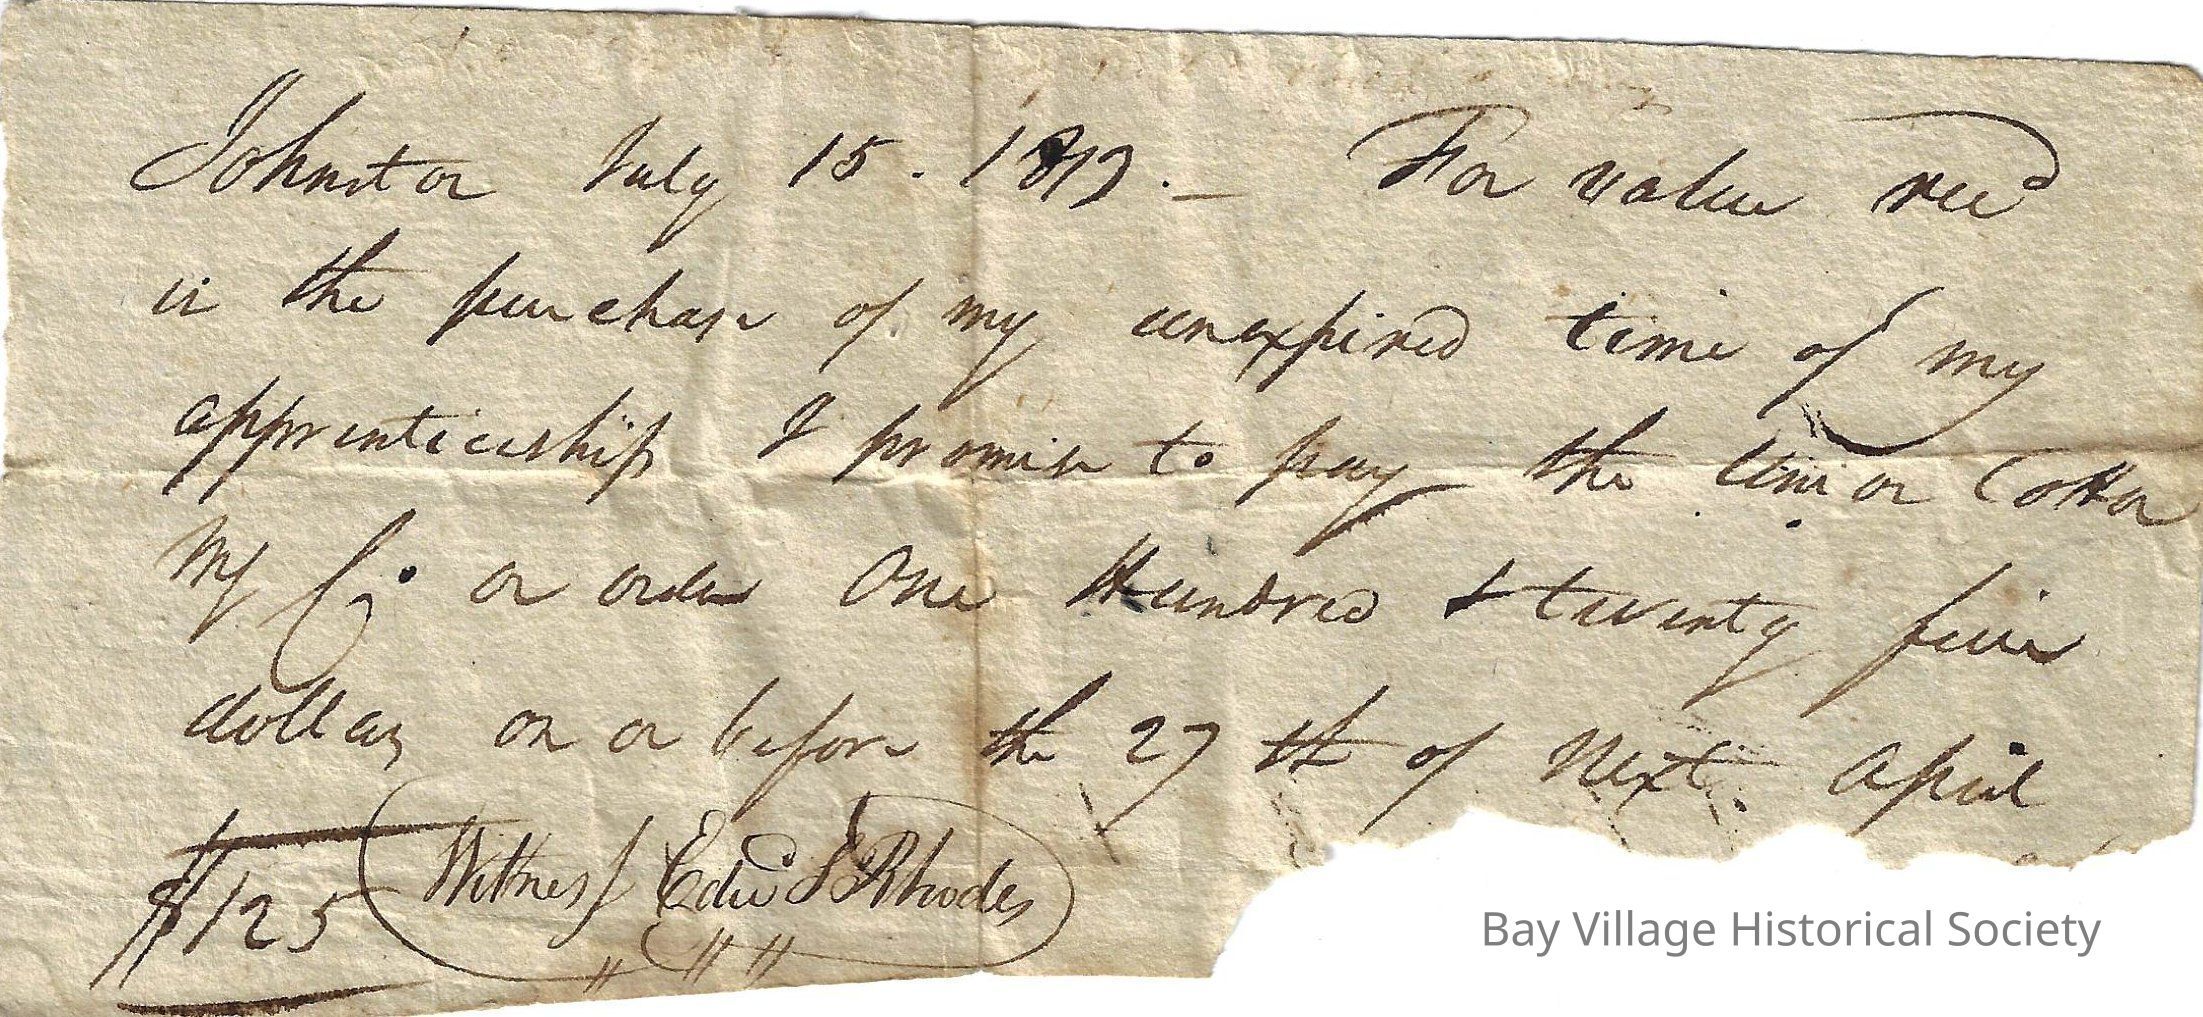 Johnston July 15. 1813. — For value recd
in the purchase of my unexpired time of my
apprenticeship I promise to pay the Union Cotton
My Co or order One Hundred & twenty five
dollars on or before the 27 th of Next April
$125 Witness Edwd S Rhodes
Bay Village Historical Society